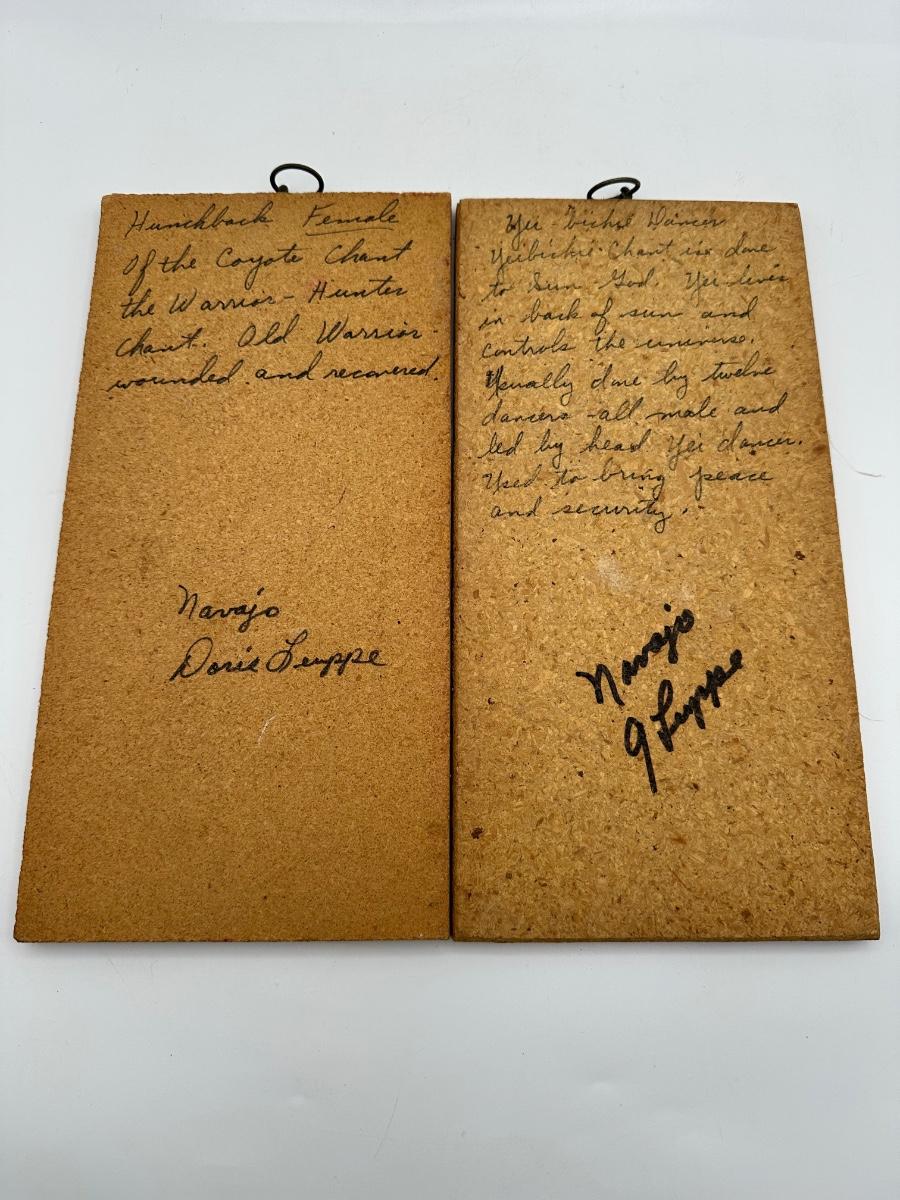 Hunchback Female
Of the Coyote Chant
the Warrior - Hunter
chant. Old Warrior -
wounded and recovered.
Navajo
Doris Leuppe
Yei - bichie Dancer
Yeibichie Chant is done
to Sun God. Yei lives
in back of sun and
controls the universe.
Usually done by twelve
dancers - all male and
led by head Yei dancer.
Used to bring peace
and security.
Navajo
J Luppe